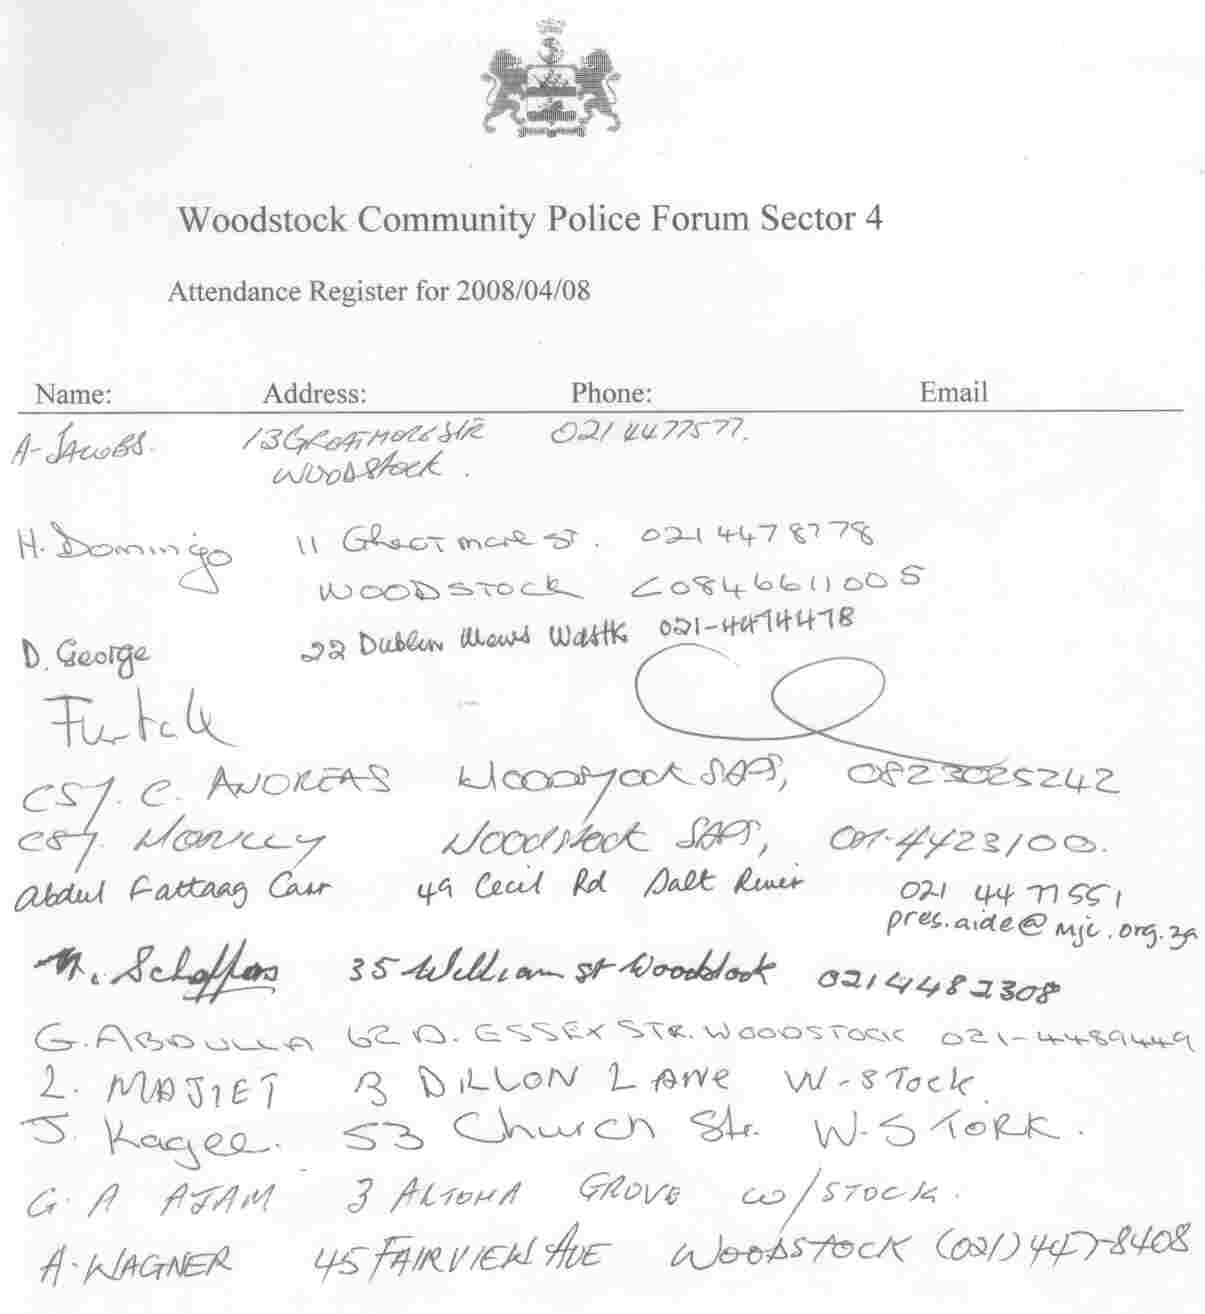 Woodstock Community Police Forum Sector 4
Attendance Register for 2008/04/08
Name: Address: Phone: Email
A-JACOBS. 13 GREATMORE STR 021 4477577.
WOODStock.
H. Domingo 11 Greatmore st. 021 4478778
WOODSTOCK C0846611005
D. George 22 Dublin Mews Wdstk 021-4474478
CS/. C. ANDREAS Woodstock SAPS, 0823025242
Woodstock SAPS, 021-4423100.
Abdul Fattaag Carr 49 Cecil Rd Salt River 021 44 77551
pres.aide@mjc.org.za
Scheffers 35 William st Woodstock 0214482308
G. ABDULLA 62 D. ESSEX STR. WOODSTOCK 021-4489449
L. MAJIET 3 DILLON LANE W-STock.
J. Kagee. 53 Church Str. W. STORK.
G. A AJAM 3 ALTONA GROVE W/STOCK.
A. WAGNER 45 FAIRVIEW AVE WOODSTOCK (021) 447-8408